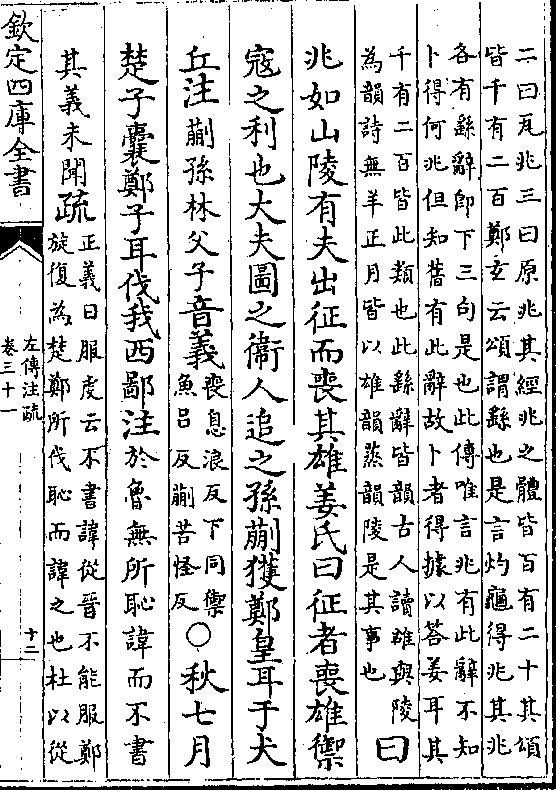 二曰瓦兆三曰原兆其經兆之體皆百有二十其頌
皆千有二百鄭玄云頌謂繇也是言灼龜得兆其兆
各有繇辭即下三句是也此傳唯言兆有此辭不知
卜得何兆但知舊有此辭故卜者得據以答姜耳其
千有二百皆此類也此繇辭皆韻古人讀雄與陵
為韻詩無羊正月皆以雄韻蒸韻陵是其事也
曰
兆如山陵有夫出征而喪其雄姜氏曰征者喪雄禦
寇之利也大夫圖之衞人追之孫蒯獲鄭皇耳于犬
丘注蒯孫林父子音義喪息浪反下同禦
魚呂反蒯苦怪反
○秋七月
楚子囊鄭子耳伐我西鄙注於魯無所恥諱而不書
其義未聞疏正義曰服虔云不書諱從晉不能服鄭
旋復為楚鄭所伐恥而諱之也杜以從
欽定四庫全書
左傳注疏
卷三十一
十二